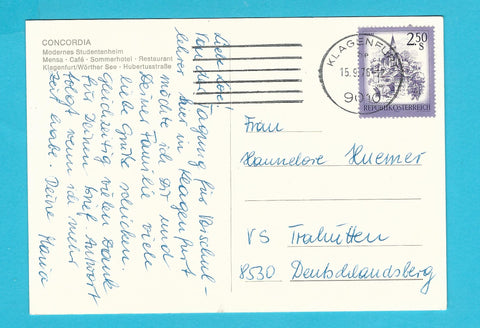 CONCORDIA
Modernes Studentenheim
Mensa · Café · Sommerhotel · Restaurant
Klagenfurt/Wörther See · Hubertusstraße
Von der Tagung für Vorschul-
lehrer hier in Klagenfurt
möchte ich Dir und
Deiner Familie viele
liebe Grüße schicken.
Gleichzeitig vielen Dank
für Deinen Brief. Antwort
folgt wenn ich mehr
Zeit habe. Deine Maria
KLAGENFURT
15.9.76
9010
2.50
S
REPUBLIK ÖSTERREICH
Frau
Hannelore Huemer
VS Trahütten
8530 Deutschlandsberg